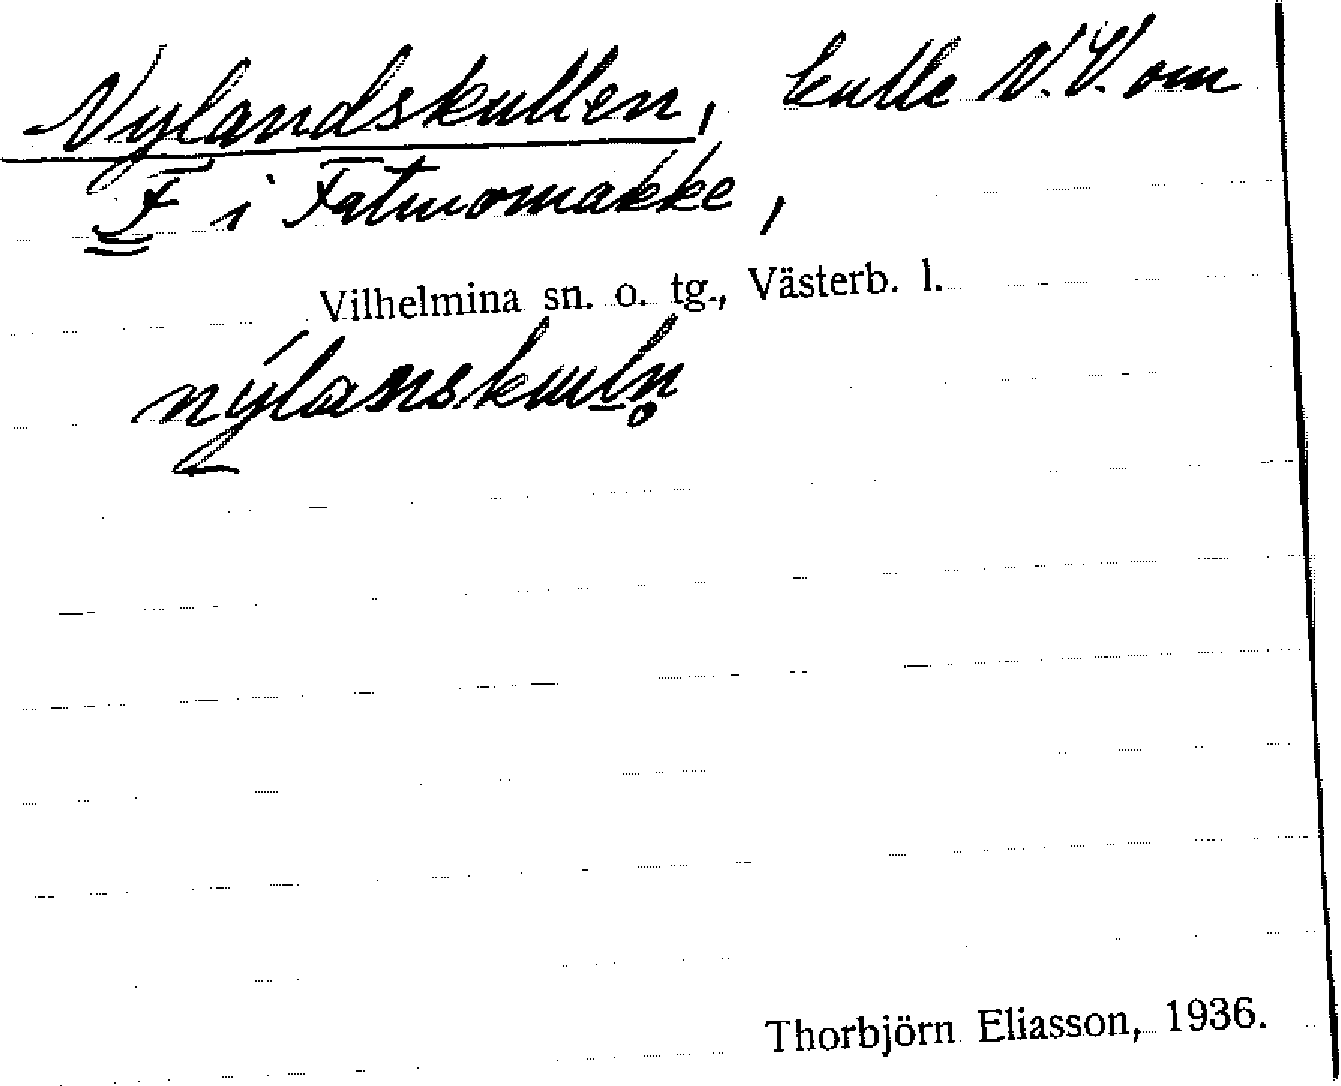 Nylandskullen, kulle N.V. om
F i Fatmomakke,
Vilhelmina sn. o. tg., Västerb. l.
Thorbjörn Eliasson, 1936.